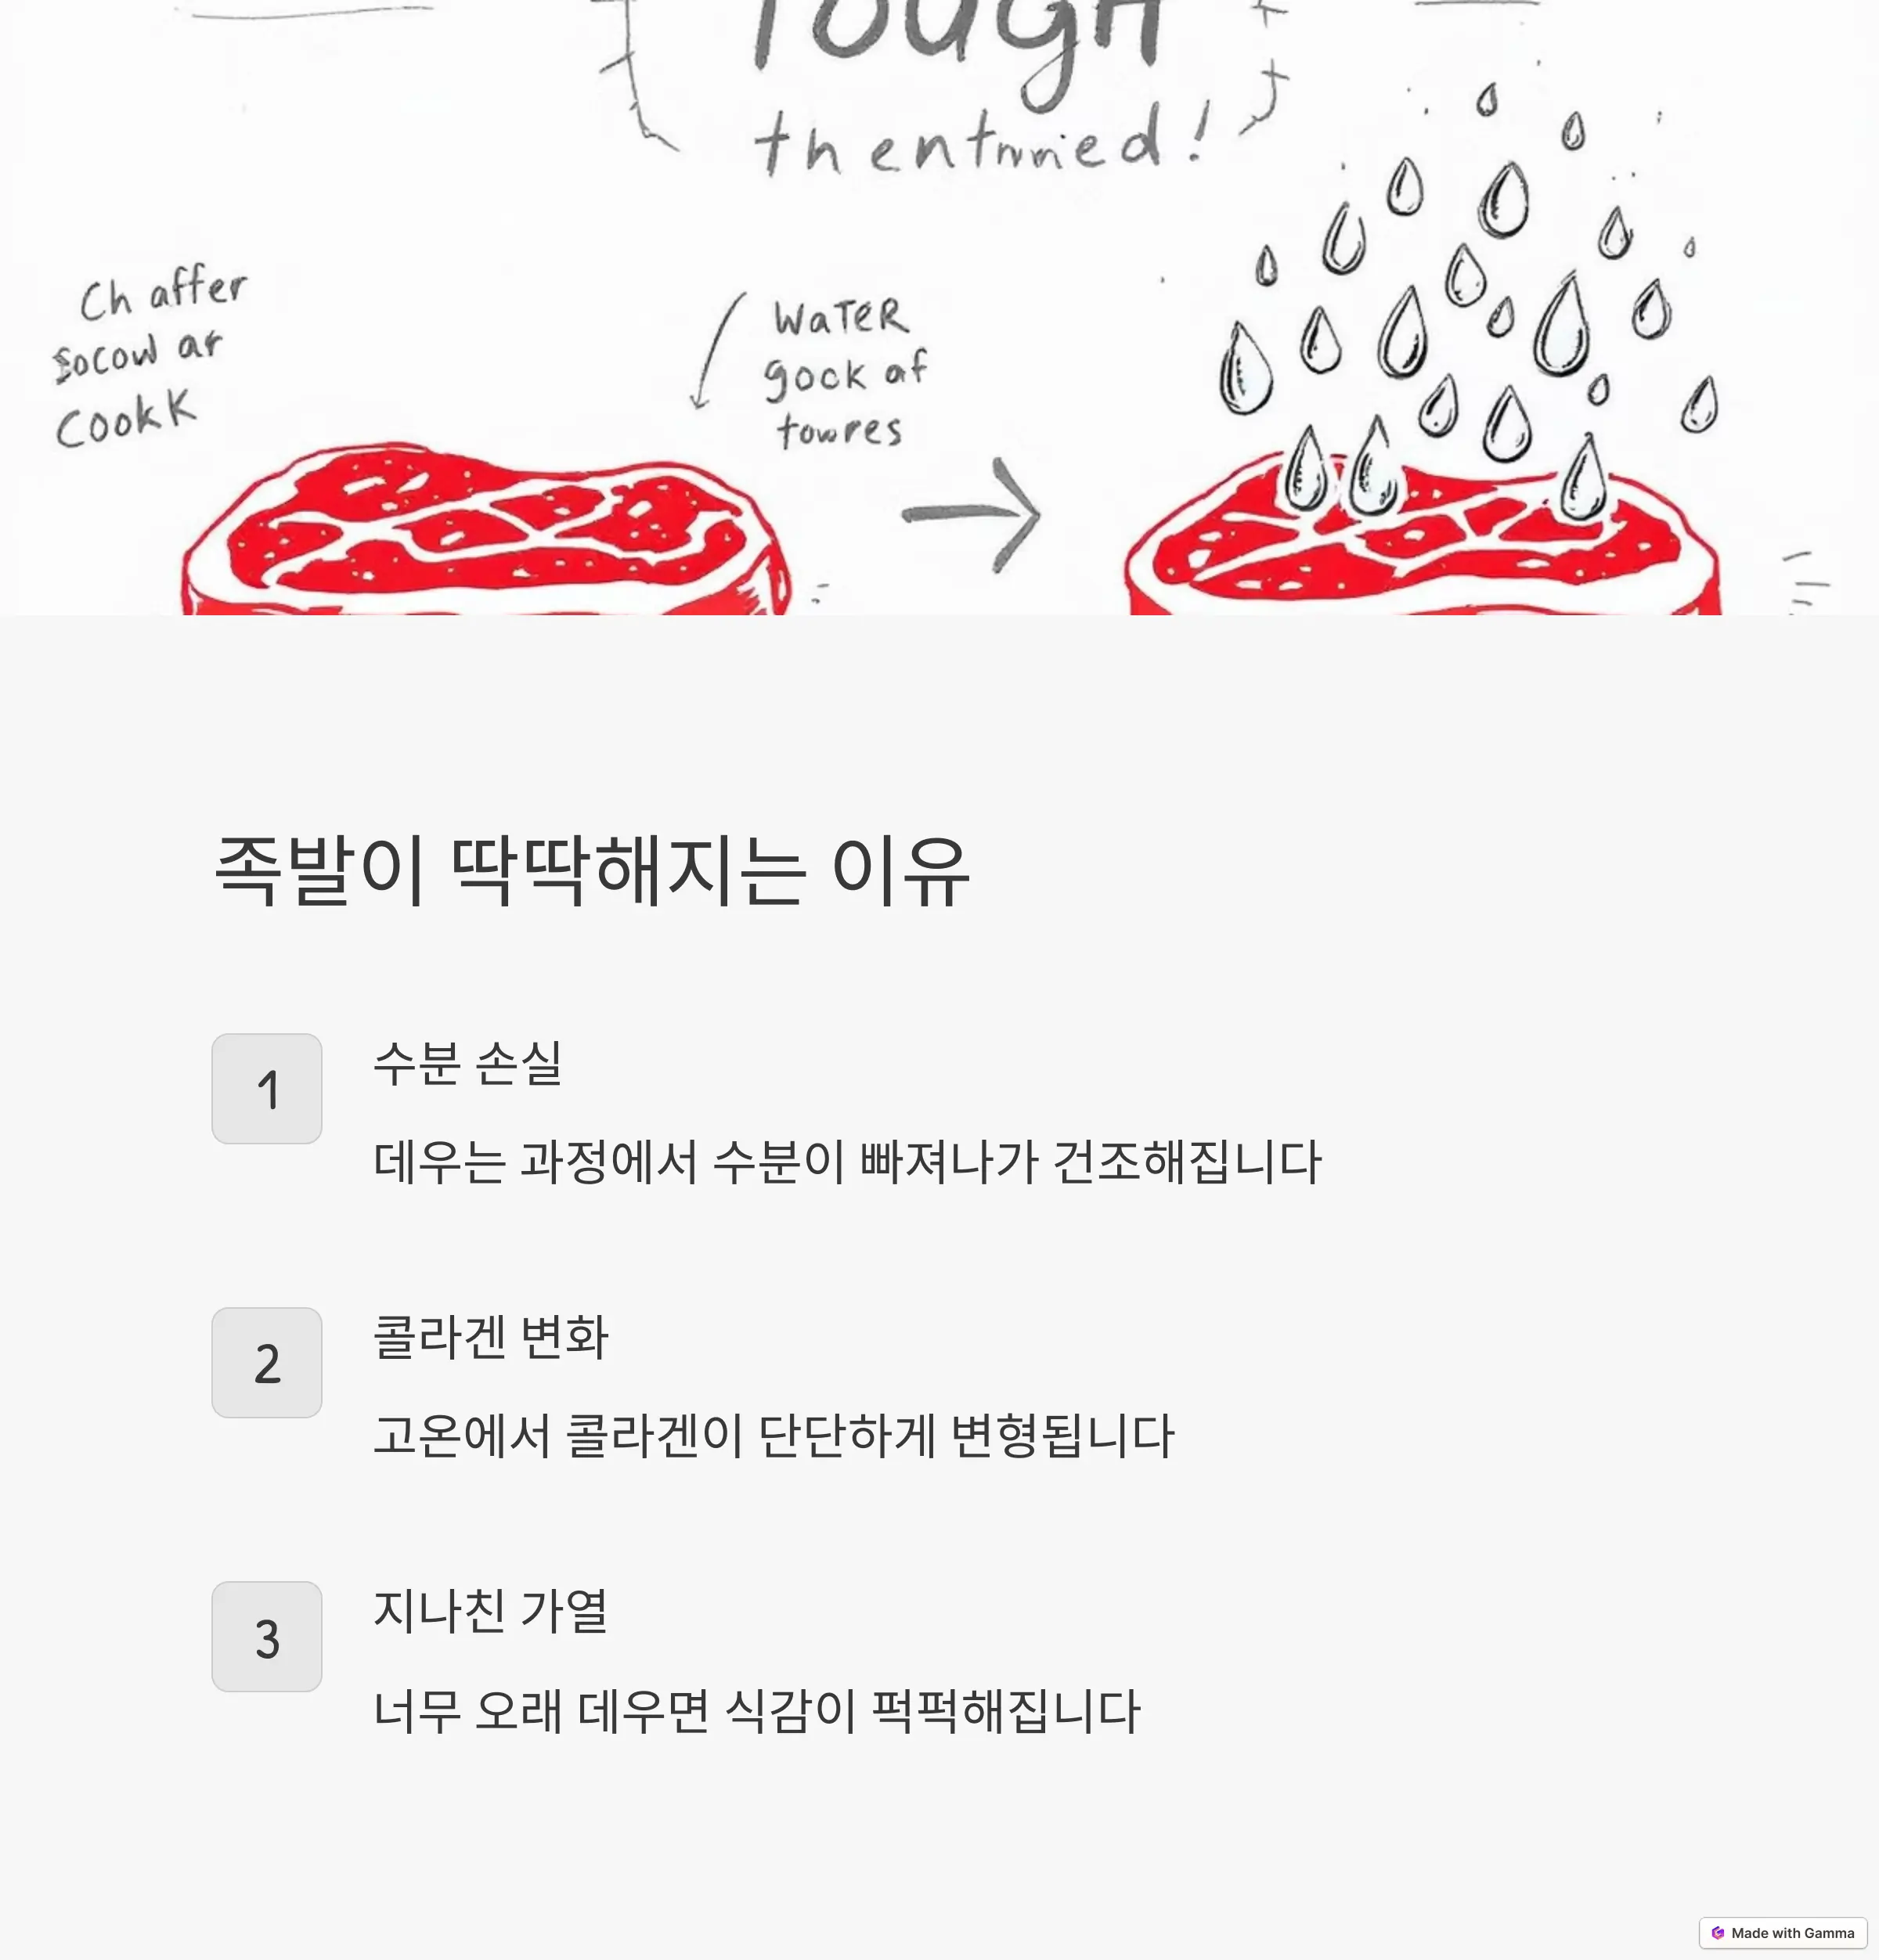 Tough
thentnmied!
Ch affer
socow ar
CookK
WaTeR
gock af
towres
족발이 딱딱해지는 이유
1
수분 손실
데우는 과정에서 수분이 빠져나가 건조해집니다
2
콜라겐 변화
고온에서 콜라겐이 단단하게 변형됩니다
3
지나친 가열
너무 오래 데우면 식감이 퍽퍽해집니다
Made with Gamma